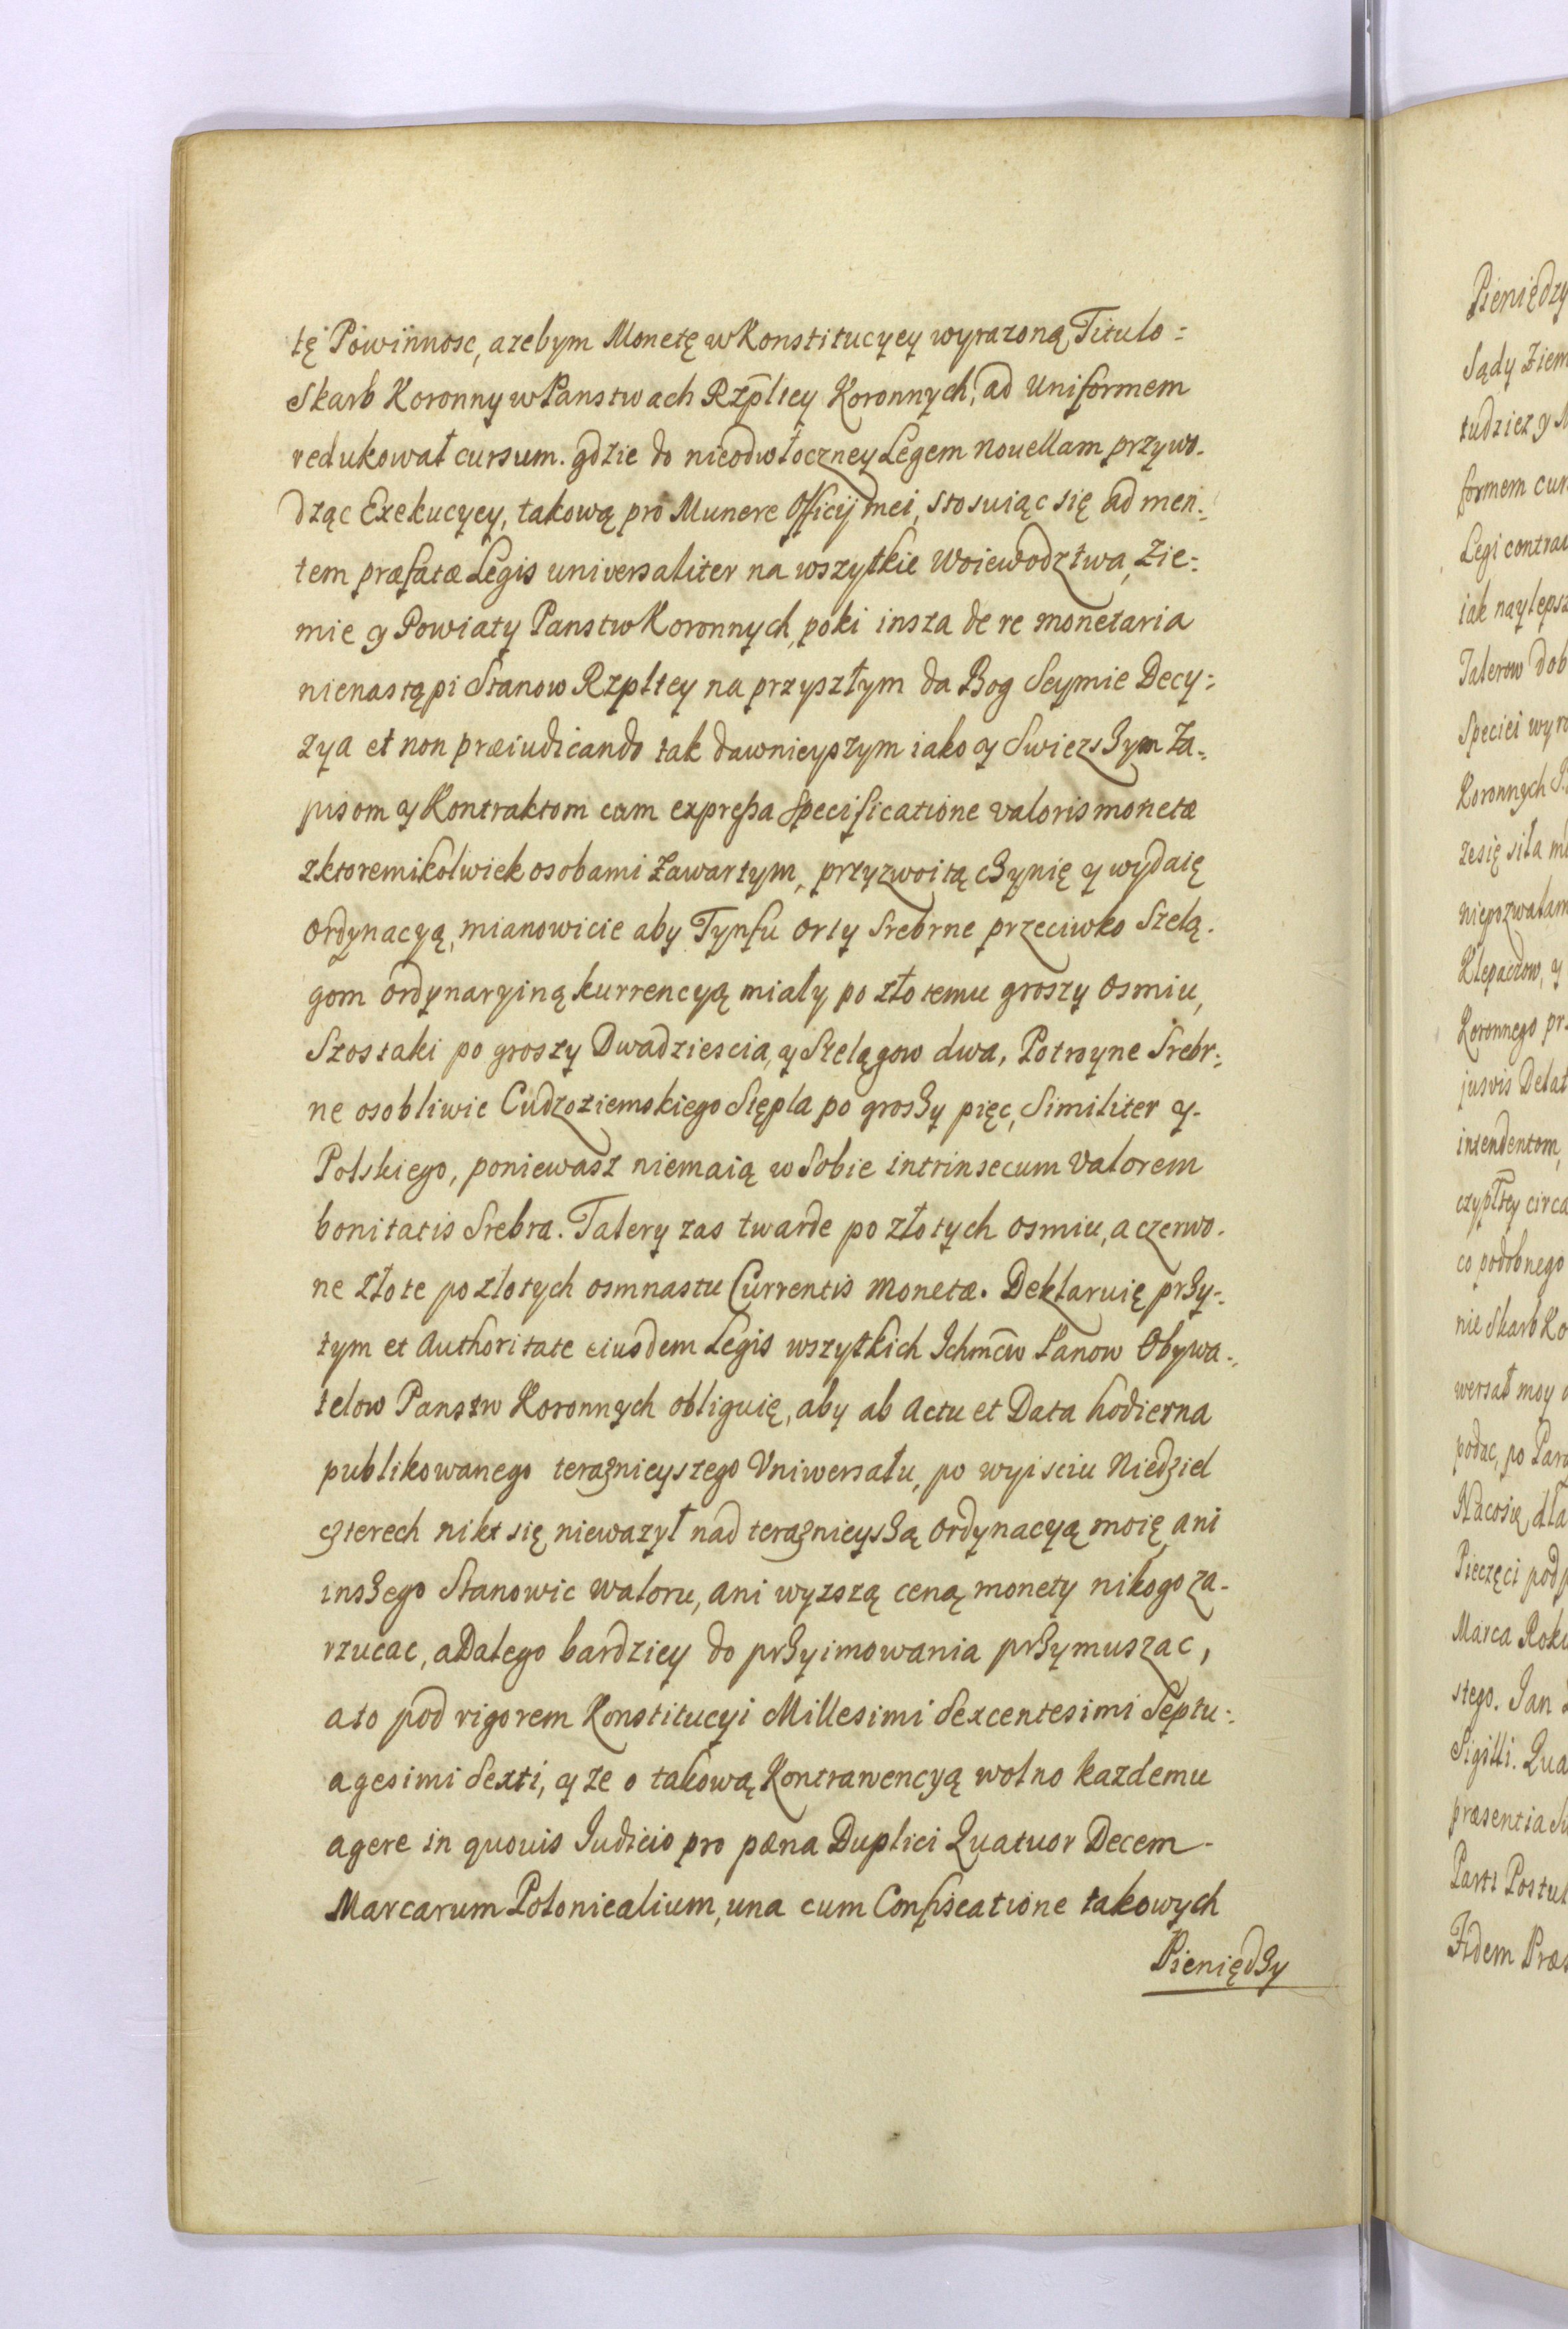 tę Powinnosc, azebym Monetę w Konstitucyey wyrazoną Titulo=
Skarb Koronny w Panstwach Rzpltey Koronnych, ad Uniformem
redukował cursum. gdzie do nieodwłoczney Legem nouellam przywo-
dząc Exekucyey, takową pro Munere Officij mei, stosuiąc się ad men=
tem præfatæ Legis universaliter na wszytkie Woiewodztwa, Zie=
mie y Powiaty Panstw Koronnych, poki insza de re monetaria
nienastąpi Stanow Rzpltey na przyszłym da Bog Seymie Decy=
zya et non præiudicando tak dawnieyszym iako y Swiezszym Za=
pisom y Kontraktom cum expressa Specificatione valoris monetæ
zktoremikolwiek osobami Zawartym, przyzwoitą czynię y wydaię
Ordynacyą, mianowicie aby Tynfu Orly Srebrne przeciwko Szelą-
gom ordynaryiną kurrencyą miały po złotemu groszy Osmiu,
Szostaki po groszy Dwadziescia, y Szelągow dwa, Potroyne Srebr=
ne osobliwie Cudzoziemskiego Stępla po groszy pięc, Similiter y-
Polskiego, poniewasz niemaią w Sobie intrinsecum valorem
bonitatis Srebra. Talery zas twarde po złotych osmiu, a czerwo-
ne złote po złotych osmnastu Currentis monetæ. Deklaruię przy=
tym et Authoritate eiusdem Legis wszytkich Ichmcw Panow Obywa=
telow Panstw Koronnych obliguię, aby ab Actu et Data hodierna
publikowanego teraznieyszego Vniwersału, po wyisciu Niedziel
czterech nikt się nieważył nad teraznieyszą Ordynacyą moię, ani
inszego Stanowic waloru, ani wyzszą ceną monety nikogo za-
rzucac, a Dalego bardziey do przyimowania przymuszac,
a to pod rigorem Konstitucyi Millesimi Sexcentesimi Septu=
agesimi Sexti, y ze o takową Kontrawencyą wolno kazdemu
agere in quouis Iudicio pro pæna Duplici Quatuor Decem-
Marcarum Polonicalium, una cum Confiscatione takowych
Pieniędzy
Pieniędzy
Sądy Ziem
tudziez y M
formem cur
Legi contrau
iak naylepsz
Talerow dob
Speciei wyra
Koronnych
ze się siła
niepozwalam
Klepaczow, y
Koronnego
jusvis Delat
intendentom,
circa
co podobnego
nie Skarb Ko
wersał moy
podac, po Para
Na co się dla
Pieczęci podp
Marca Roku
stego. Jan
Sigilli. Qua
præsentia
Parti Postul
Fidem Præs